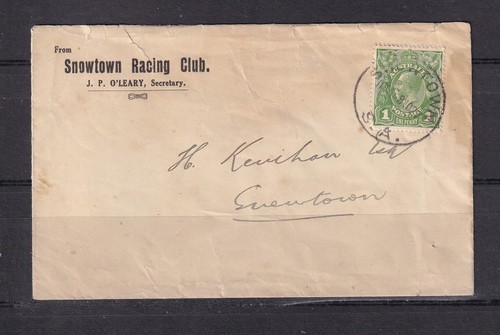 From
Snowtown Racing Club.
J. P. O'LEARY, Secretary.
AUSTRALIA
POSTAGE
1 ONE PENNY 1
SNOWTOWN
S.A.
H. Kenihan Esq
Snowtown